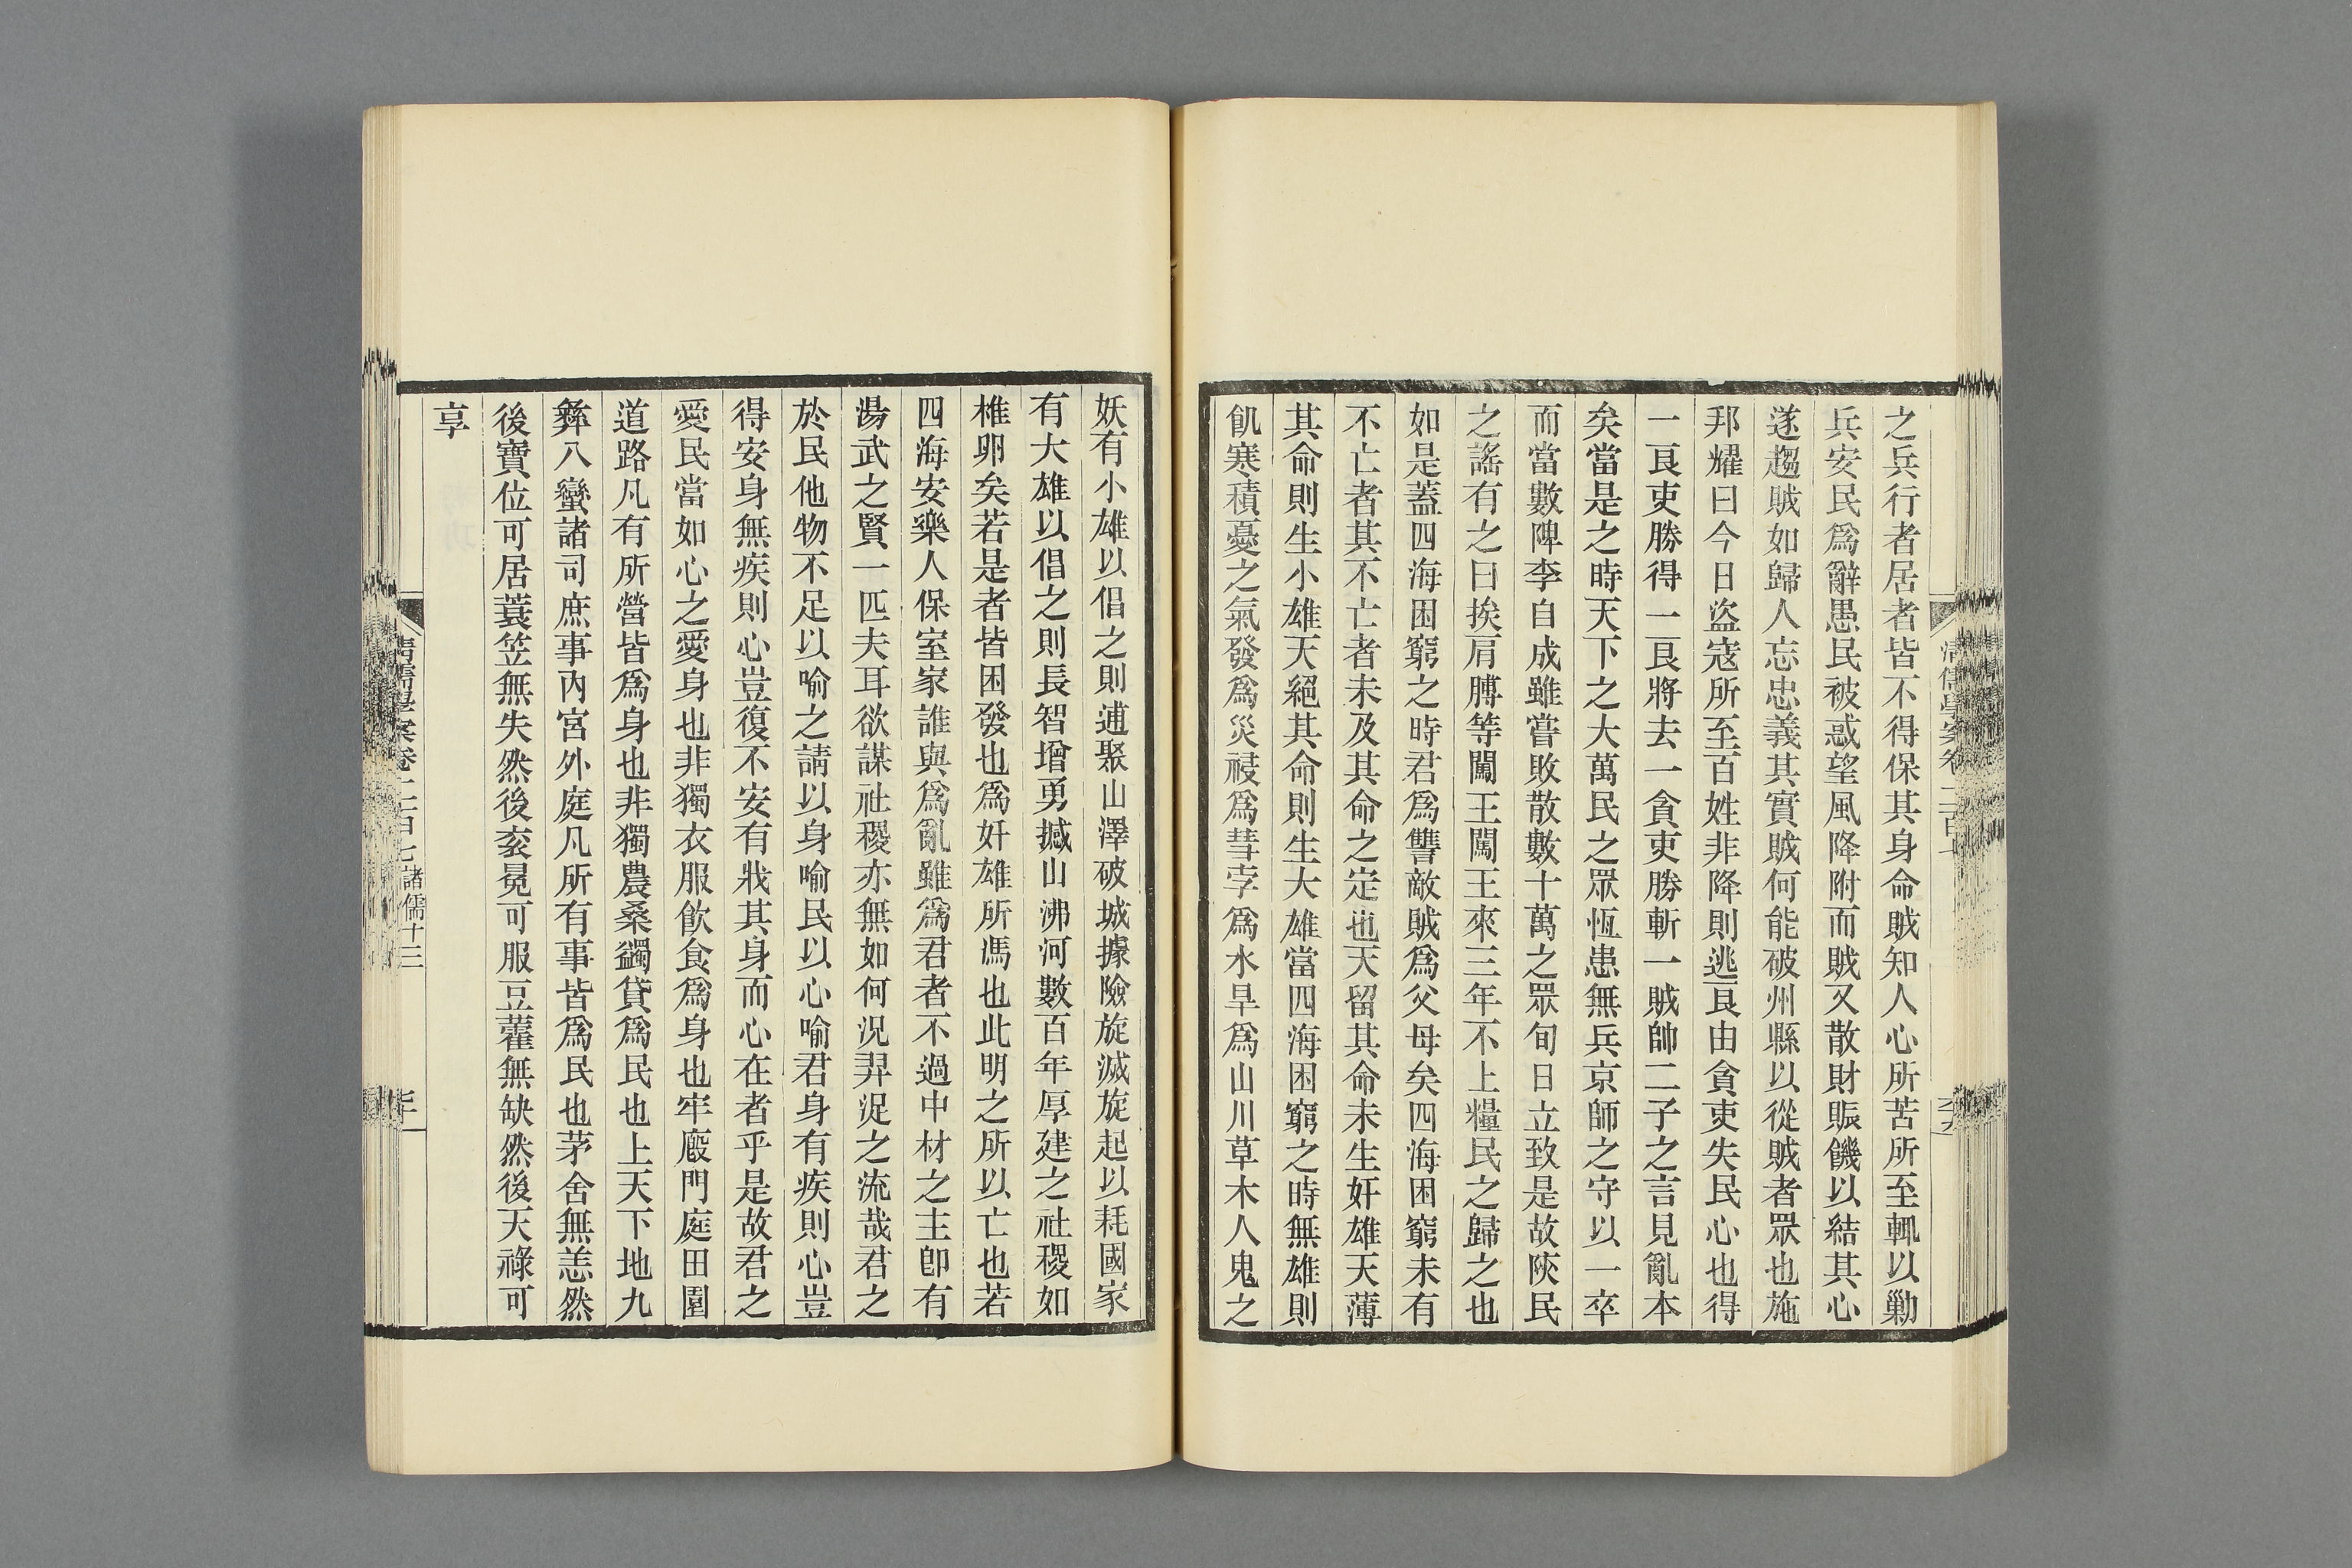 之兵行者居者皆不得保其身命賊知人心所苦所至輒以勦
兵安民爲辭愚民被惑望風降附而賊又散財賑饑以結其心
遂趨賊如歸人忘忠義其實賊何能破州縣以從賊者眾也施
邦耀曰今日盜寇所至百姓非降則逃良由貪吏失民心也得
一良吏勝得一良將去一貪吏勝斬一賊帥二子之言見亂本
矣當是之時天下之大萬民之眾恆患無兵京師之守以一卒
而當數陴李自成雖嘗敗散數十萬之眾旬日立致是故陝民
之謠有之曰挨肩膊等闖王闖王來三年不上糧民之歸之也
如是蓋四海困窮之時君爲讐敵賊爲父母矣四海困窮未有
不亡者其不亡者未及其命之定也天留其命未生奸雄天薄
其命則生小雄天絕其命則生大雄當四海困窮之時無雄則
飢寒積憂之氣發爲災祲爲彗孛爲水旱爲山川草木人鬼之
妖有小雄以倡之則逋聚山澤破城據險旋滅旋起以耗國家
有大雄以倡之則長智增勇撼山沸河數百年厚建之社稷如
椎卵矣若是者皆困發也爲奸雄所馮也此明之所以亡也若
四海安樂人保室家誰與爲亂雖爲君者不過中材之主卽有
湯武之賢一匹夫耳欲謀社稷亦無如何況羿浞之流哉君之
於民他物不足以喻之請以身喻民以心喻君身有疾則心豈
得安身無疾則心豈復不安有戕其身而心在者乎是故君之
愛民當如心之愛身也非獨衣服飲食爲身也牢廄門庭田園
道路凡有所營皆爲身也非獨農桑蠲貸爲民也上天下地九
彝八蠻諸司庶事內宮外庭凡所有事皆爲民也茅舍無恙然
後寶位可居蓑笠無失然後袞冕可服豆藿無缺然後天祿可
享
清儒學案卷二百七 諸儒十三